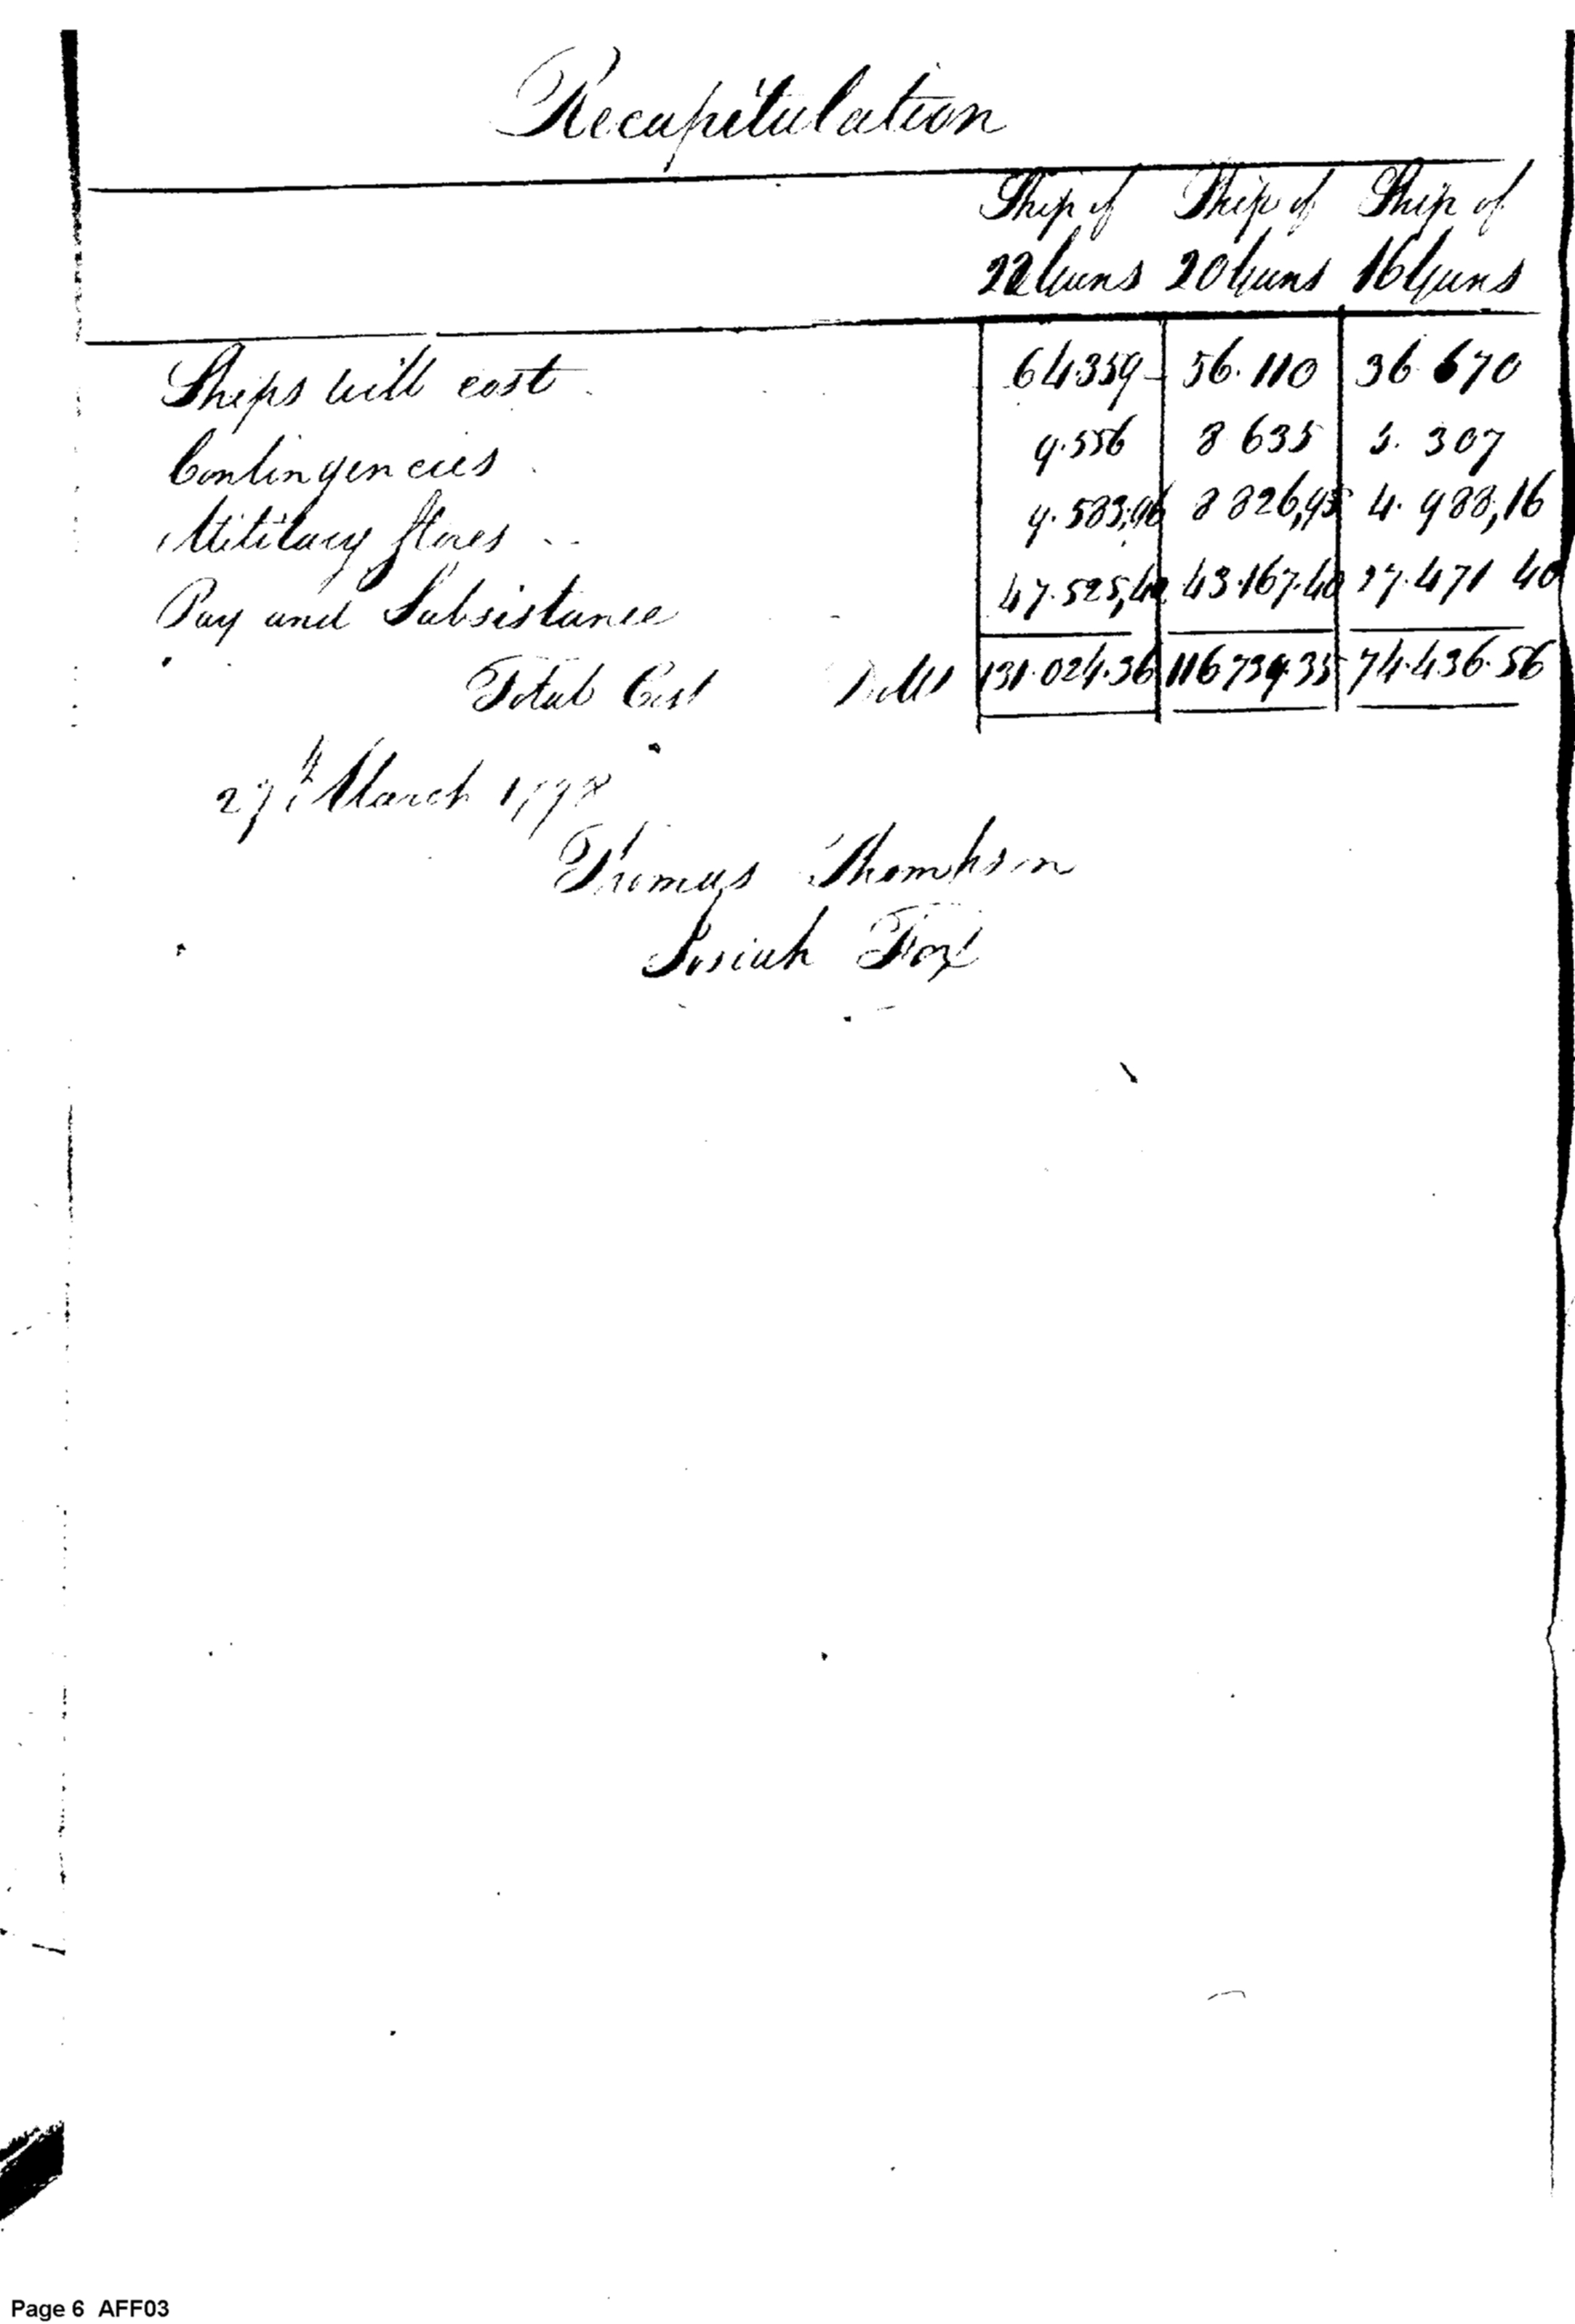 Recapitulation
Ship of Ship of Ship of
22 Guns 20 Guns 16 Guns
Ships will cost 64.359 56.110 36 670
Contingencies 9.556 8 635 5. 307
Military Stores 9.583,96 8 826,95 4. 988,16
Pay and Subsistance 47.525,40 43.167.40 27.471 40
Total Cost Dolls 131.024.36 116 739.35 74.436.56
27th March 1798
Thomas Thompson
Josiah Fox
Page 6 AFF03